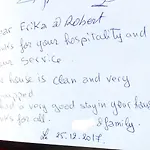 ear Erika & Robert
ks for your hospitality and
our Service.
house is clan and very
uipped
had a very good stay in your hous
ks for all.
& family.
25.12.2017.